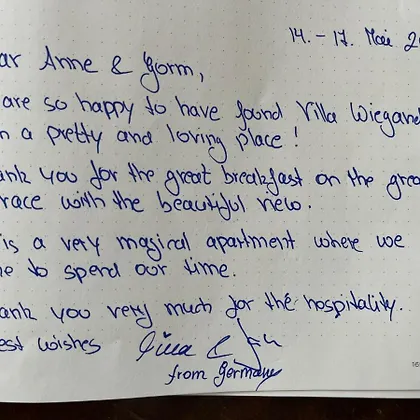 14. - 17. Mai 2
ar Anne & Gorm,
are so happy to have found Villa Wiegand
n a pretty and loving place!
ank you for the great breakfast on the grea
race with the beautiful view.
is a very magical apartment where we
e to spend our time.
ank you very much for the hospitality.
est wishes
from Germany